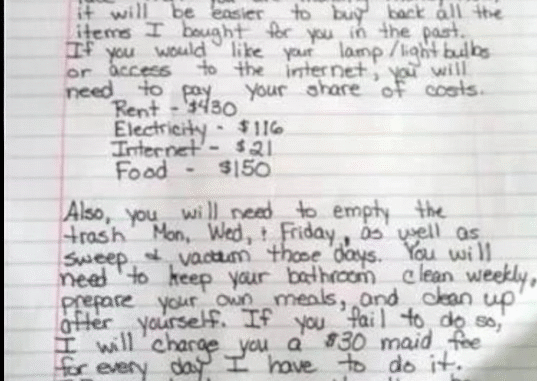 it will be easier to buy back all the
items I bought for you in the past.
If you would like your lamp/lightbulbs
or access to the internet, you will
need to pay your share of costs.
Rent - $430
Electricity - $116
Internet - $21
Food - $150
Also, you will need to empty the
trash Mon, Wed, + Friday, as well as
sweep & vacuum those days. You will
need to keep your bathroom clean weekly,
prepare your own meals, and clean up
after yourself. If you fail to do so,
I will charge you a $30 maid fee
for every day I have to do it.